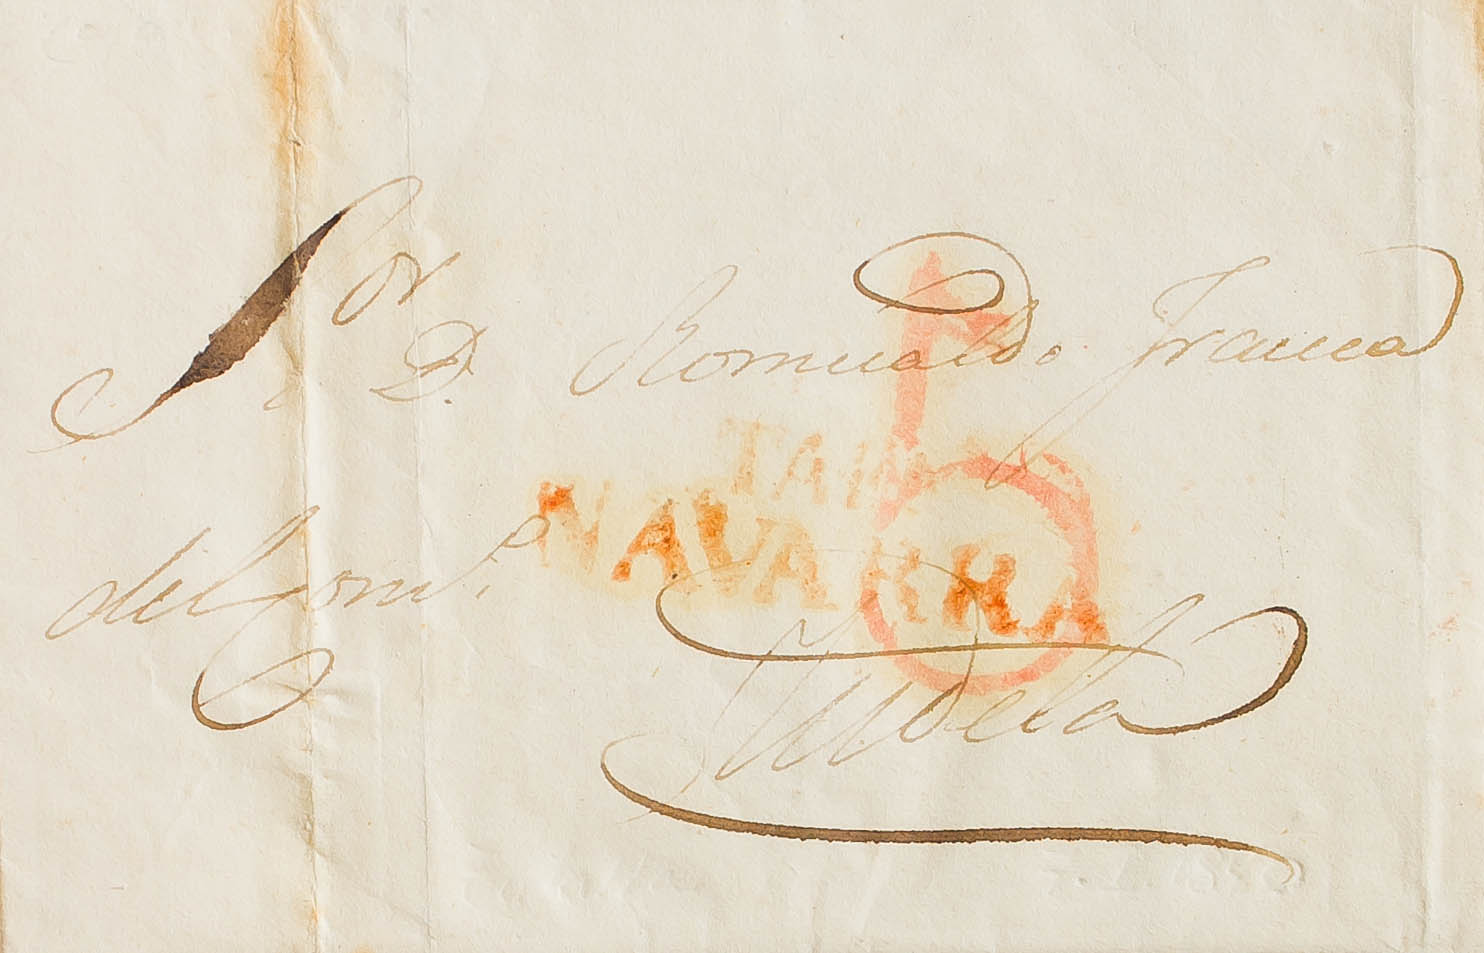 Sor
D. Romualdo Franca
TAFA
NAVARRA
del Comº.
Tudela